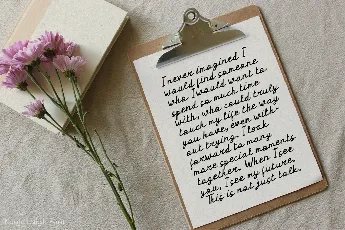 I never imagined I
would find someone
who I would want to
spend so much time
with, who could truly
touch my life the way
you have, even with-
out trying. I look
forward to many
more special moments
together. When I see
you, I see my future.
This is not just talk.